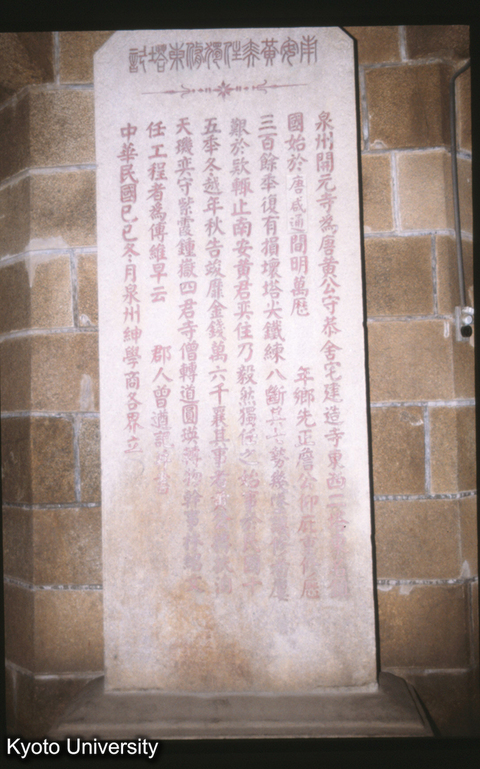 南安黃奕住獨修東塔記
泉州開元寺為唐黃公守恭舍宅建造寺東西二塔
國始於唐咸通間明萬厯 年鄉先正詹公仰庇
三百餘年復有損壞塔尖鐵練八斷其七勢
艱於欵輒止南安黃君奕住乃毅然獨
五季冬越年秋告竣靡金錢萬六千襄其事者
天璣奕守紫霞鍾嶽四君寺僧轉道圓瑛轉物
任工程者為傅維早云 郡人曾遒
中華民國己巳冬月泉州紳學商各界立
Kyoto University